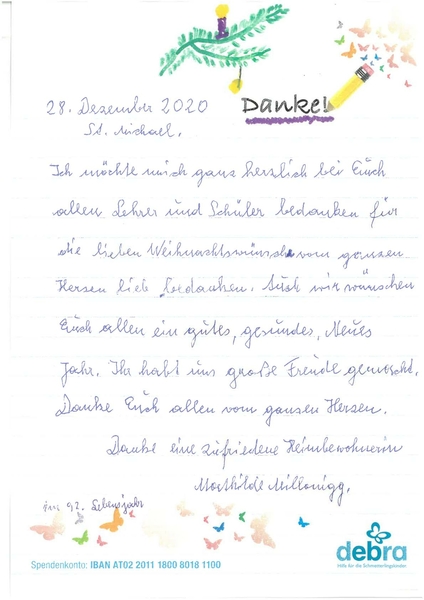 Danke!
28. Dezember 2020
St. Michael,
Ich möchte mich ganz herzlich bei Euch
allen Lehrer und Schüler bedanken für
die lieben Weihnachtswünsche vom ganzen
Herzen lieb bedanken. Auch wir wünschen
Euch allen ein gutes, gesundes, Neues
Jahr. Ihr habt uns große Freude gemacht.
Danke Euch allen vom ganzen Herzen.
Danke eine zufriedene Heimbewohnerin
Mathilde Millonigg,
im 92. Lebensjahr
debra
Hilfe für die Schmetterlingskinder.
Spendenkonto: IBAN AT02 2011 1800 8018 1100